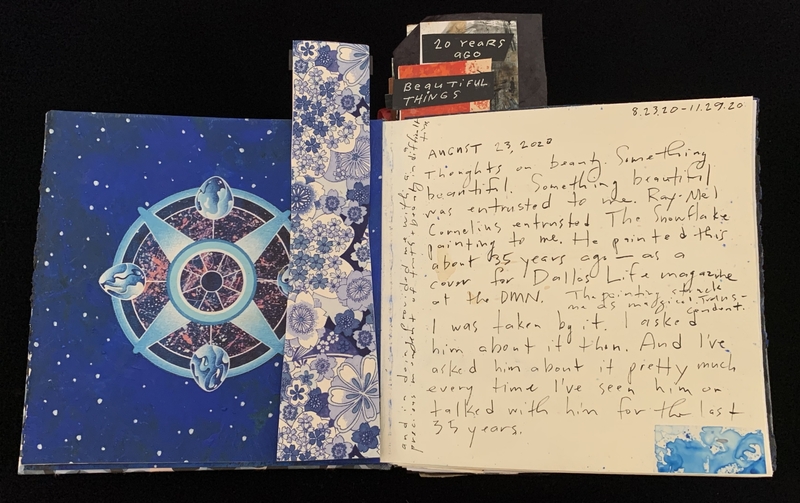 20 YEARS
AGO
BEAUTIFUL
THINGS
8.23.20-11.29.20
AUGUST 23, 2020
Thoughts on beauty. Something
beautiful. Something beautiful
was entrusted to me. Ray-Mel
Cornelius entrusted The Snowflake
painting to me. He painted this
about 35 years ago - as a
cover for Dallas Life magazine
at the DMN. The painting struck
me as magical. Trans-
cendent.
I was taken by it. I asked
him about it then. And I've
asked him about it pretty much
every time I've seen him or
talked with him for the last
35 years.
and in doing so
precious
beauty in difficult